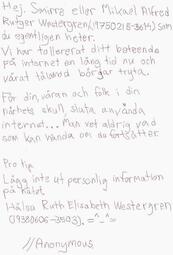 Hej, Smirre eller Mikael Alfred
Rutger Westergren(19750218-3614) Som
du egentligen heter.
Vi har följererat ditt beteende
på internet en lång tid nu och
vårat tålamod börjar tryta.
För din, våran och folk i din
närhets skull, sluta använda
internet... Man vet aldrig vad
som kan hända om du fortsätter.
Pro tip
Lägg inte ut personlig information
på nätet.
Hälsa Ruth Elisabeth Westergren
(19380606-3503). =^_^=
//Anonymous